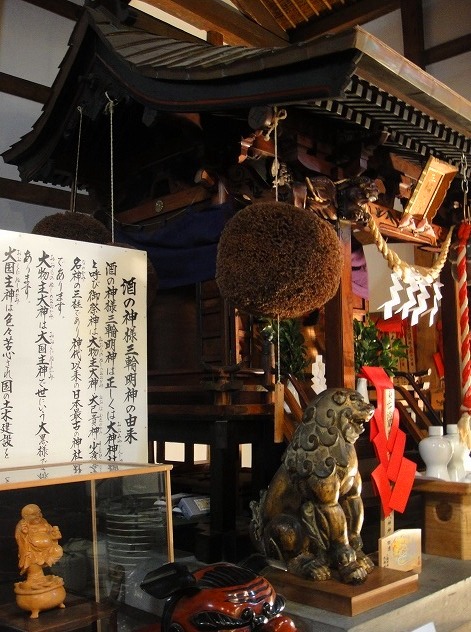 酒の神様三輪明神の由来
酒の神様三輪明神は正しくは大神神
と呼び御祭神は大物主大神、大己貴神、少彦
名神の三柱であり、神代以来の日本最古の神社
であります。
大物主大神は大国主神で世にいう大黒様で
あります。
大国主神は色々苦心され国の土木建設と